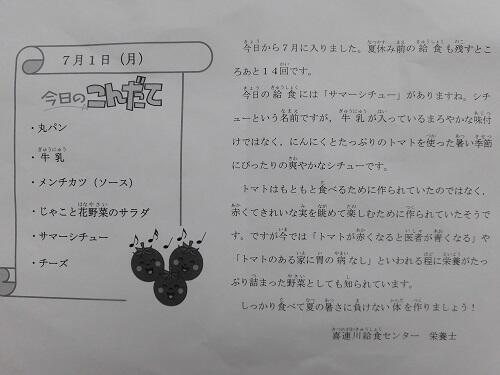 7月1日（月）
今日のこんだて
・丸パン
・牛乳
・メンチカツ（ソース）
・じゃこと花野菜のサラダ
・サマーシチュー
・チーズ
今日から7月に入りました。夏休み前の給食も残すとこ
ろあと14回です。
今日の給食には「サマーシチュー」がありますね。シチ
ューという名前ですが、牛乳が入っているまろやかな味付
けではなく、にんにくとたっぷりのトマトを使った暑い季節
にぴったりの爽やかなシチューです。
トマトはもともと食べるために作られていたのではなく、
赤くてきれいな実を眺めて楽しむために作られていたそうで
す。ですが今では「トマトが赤くなると医者が青くなる」や
「トマトのある家に胃の病なし」といわれる程に栄養がたっ
ぷり詰まった野菜としても知られています。
しっかり食べて夏の暑さに負けない体を作りましょう！
喜連川給食センター　栄養士